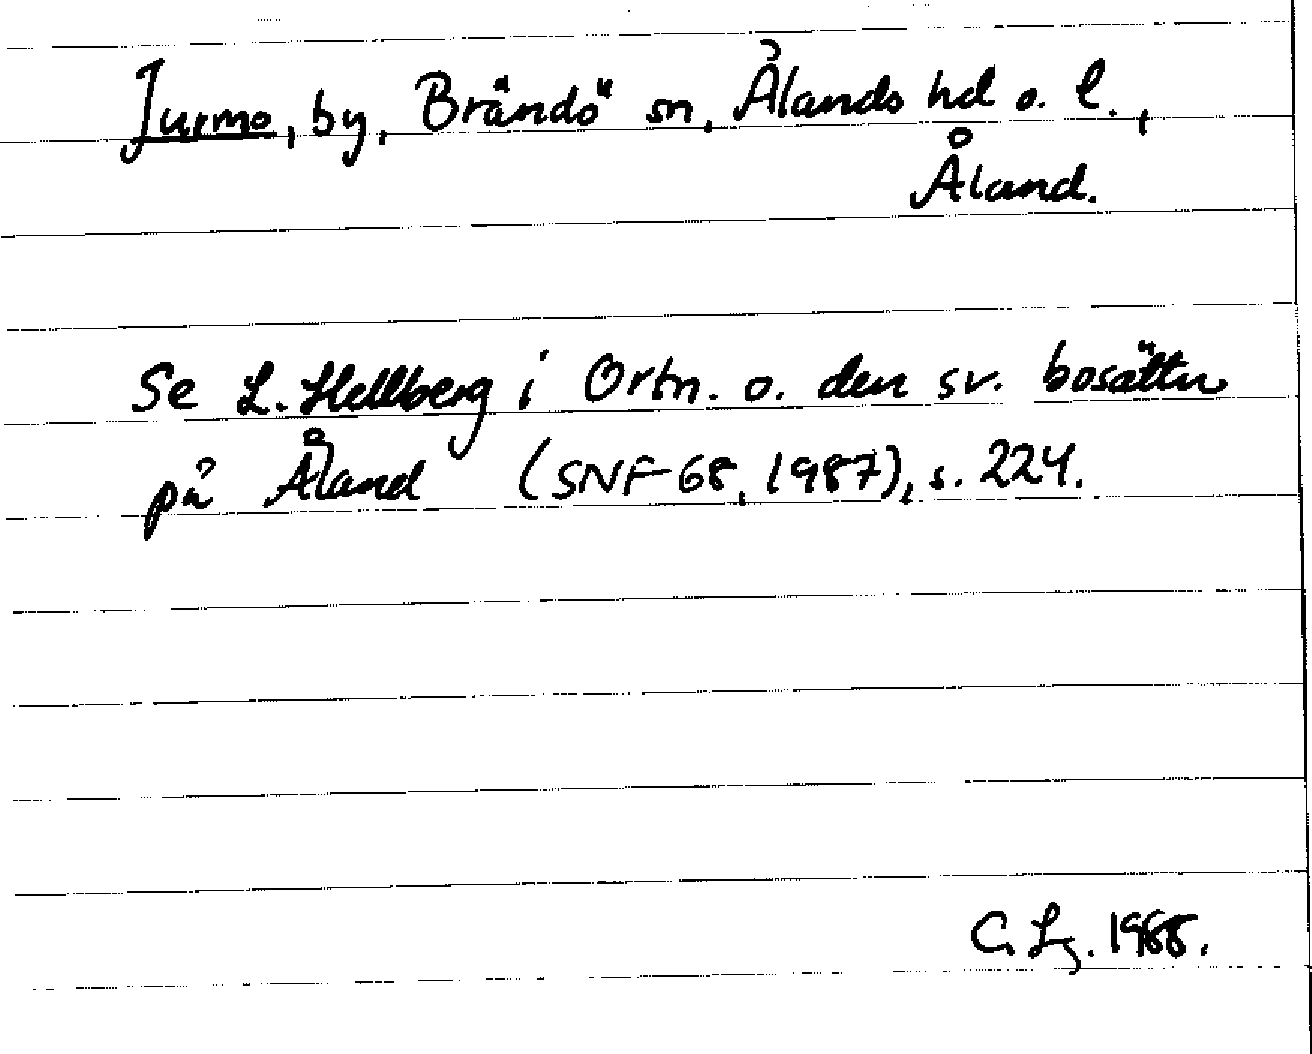 Jurmo, by, Brändö sn, Ålands hd o. l.,
Åland.
Se L. Hellberg i Ortn. o. den sv. bosättn
på Åland (SNF 68, 1987), s. 224.
C. Lg. 1988.